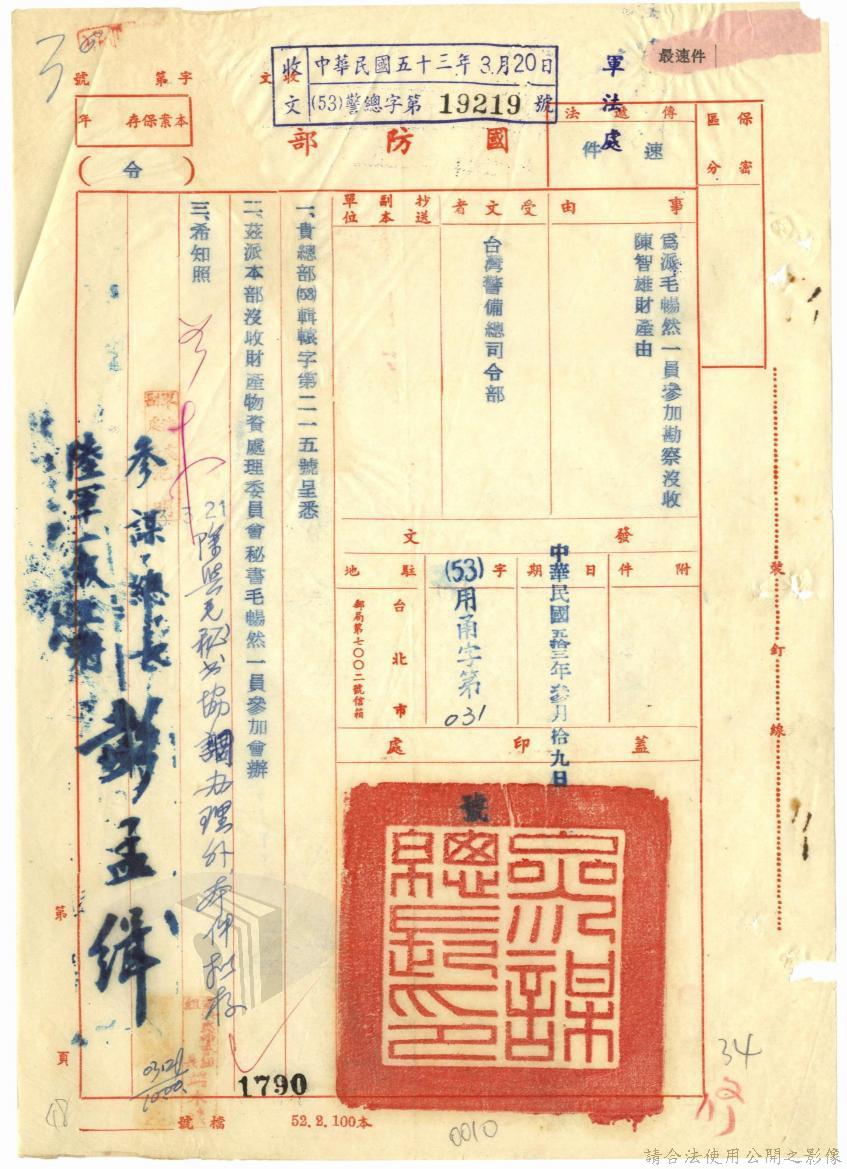 最速件
保密區分
軍法處
收文
中華民國五十三年3月20日
(53)警總字第19219號
收文
字第
號
傳遞法
速件
本案保存
年
國防部
(令)
事由
為派毛暢然一員參加勘察沒收
陳智雄財產由
受文者
台灣警備總司令部
抄送
副本
單位
發文
附件
日期
中華民國五拾三年叁月拾九日
字
(53)用甬字第031號
駐地
台北市
郵局第七〇〇二號信箱
蓋印處
參謀總長印
一、貴總部(53)輯轅字第二一五號呈悉
二、茲派本部沒收財產物資處理委員會秘書毛暢然一員參加會辦
三、希知照
參謀總長
陸軍一級上將
彭孟緝
除與毛秘書協調辦理外本件擬存
3
21
0321
1000
裝訂線
第
頁
1790
檔號
52.2.100本
0010
34
48
請合法使用公開之影像